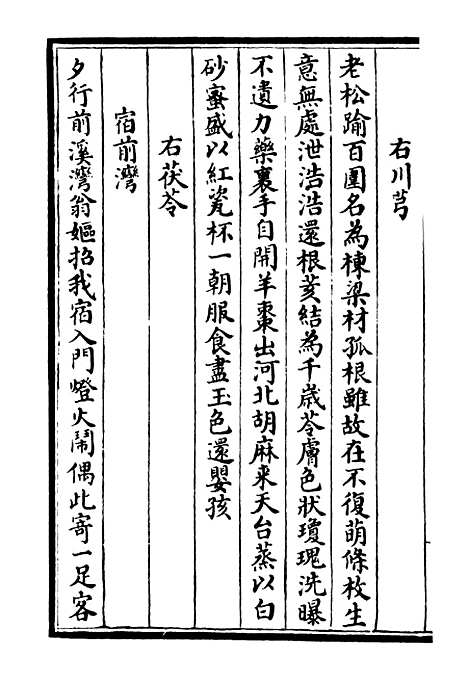 右川芎
老松踰百圍名為棟梁材孤根雖故在不復萌條枚生
意無處泄浩浩還根荄結為千歳苓膚色狀瓊瑰洗曝
不遺力藥裹手自開羊棗出河北胡麻来天台蒸以白
砂蜜盛以紅瓷杯一朝服食盡玉色還嬰孩
右茯苓
宿前灣
夕行前溪灣翁嫗招我宿入門燈火鬧偶此寄一足客